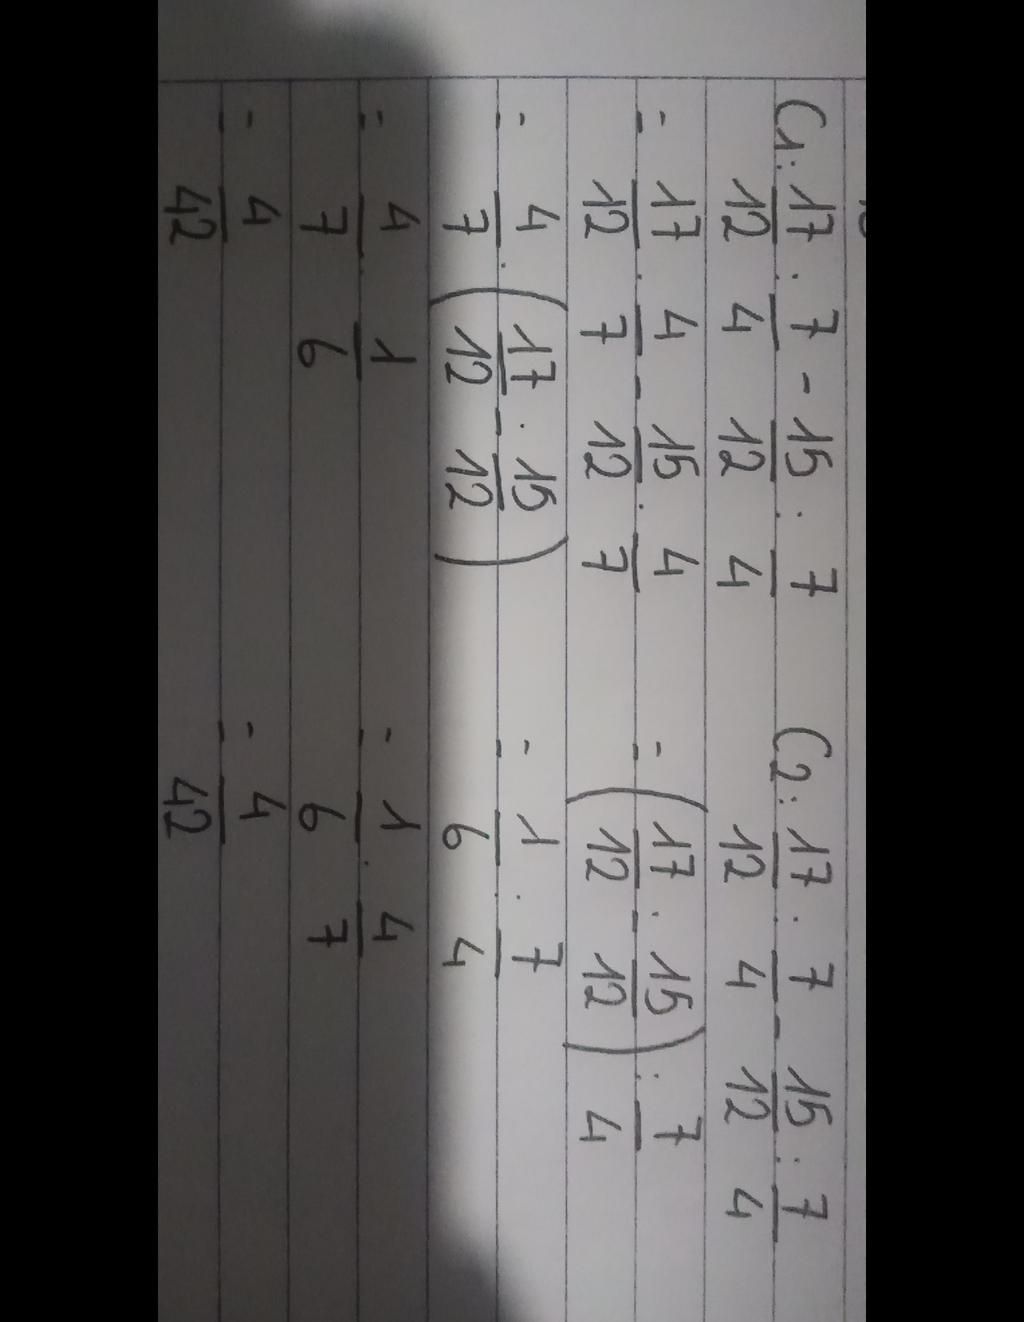 C1: 17/12 : 7/4 - 15/12 : 7/4
= 17/12 . 4/7 - 15/12 . 4/7
= 4/7 . (17/12 - 15/12)
= 4/7 . 1/6
= 4/42
C2: 17/12 : 7/4 - 15/12 : 7/4
= (17/12 - 15/12) : 7/4
= 1/6 : 7/4
= 1/6 . 4/7
= 4/42